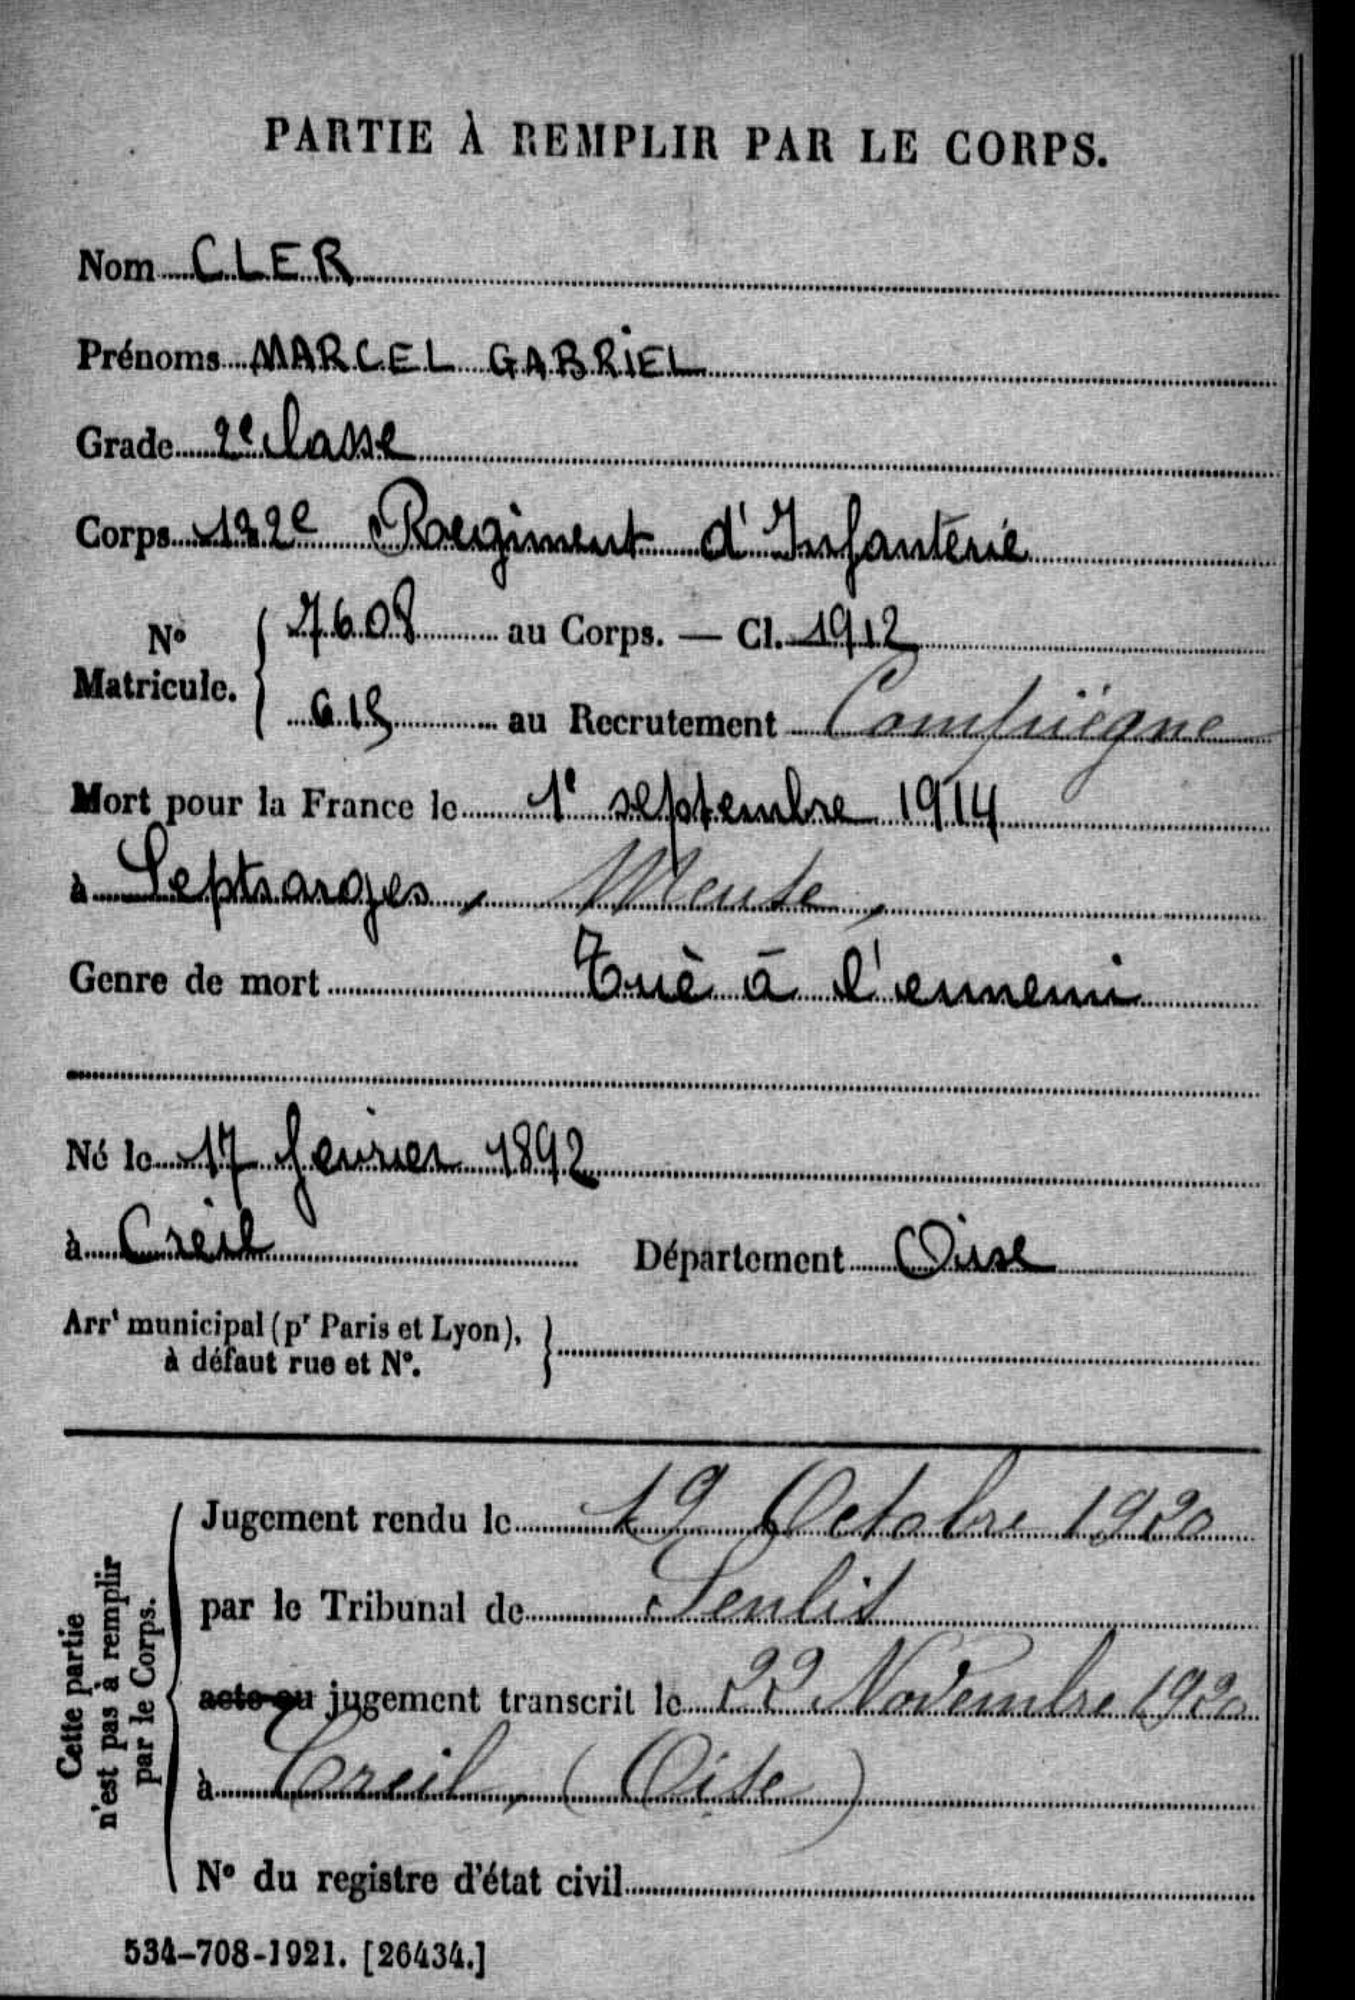 PARTIE À REMPLIR PAR LE CORPS.
Nom CLER
Prénoms MARCEL GABRIEL
Grade 2e classe
Corps Regiment d'Infanterie
No Matricule. { 7608 au Corps. — Cl. 1912
au Recrutement Compiègne
Mort pour la France le 1e septembre 1914
à Septsarges, Meuse,
Genre de mort Tué à l'ennemi
Né le 17 fevrier 1892
à Creil Département Oise
Arrt municipal (pr Paris et Lyon), }
à défaut rue et No.
Cette partie
n'est pas à remplir
par le Corps.
Jugement rendu le 19 Octobre 1920
par le Tribunal de Senlis
acte ou jugement transcrit le 22 Novembre 1920
à Creil, (Oise)
No du registre d'état civil
534-708-1921. [26434.]